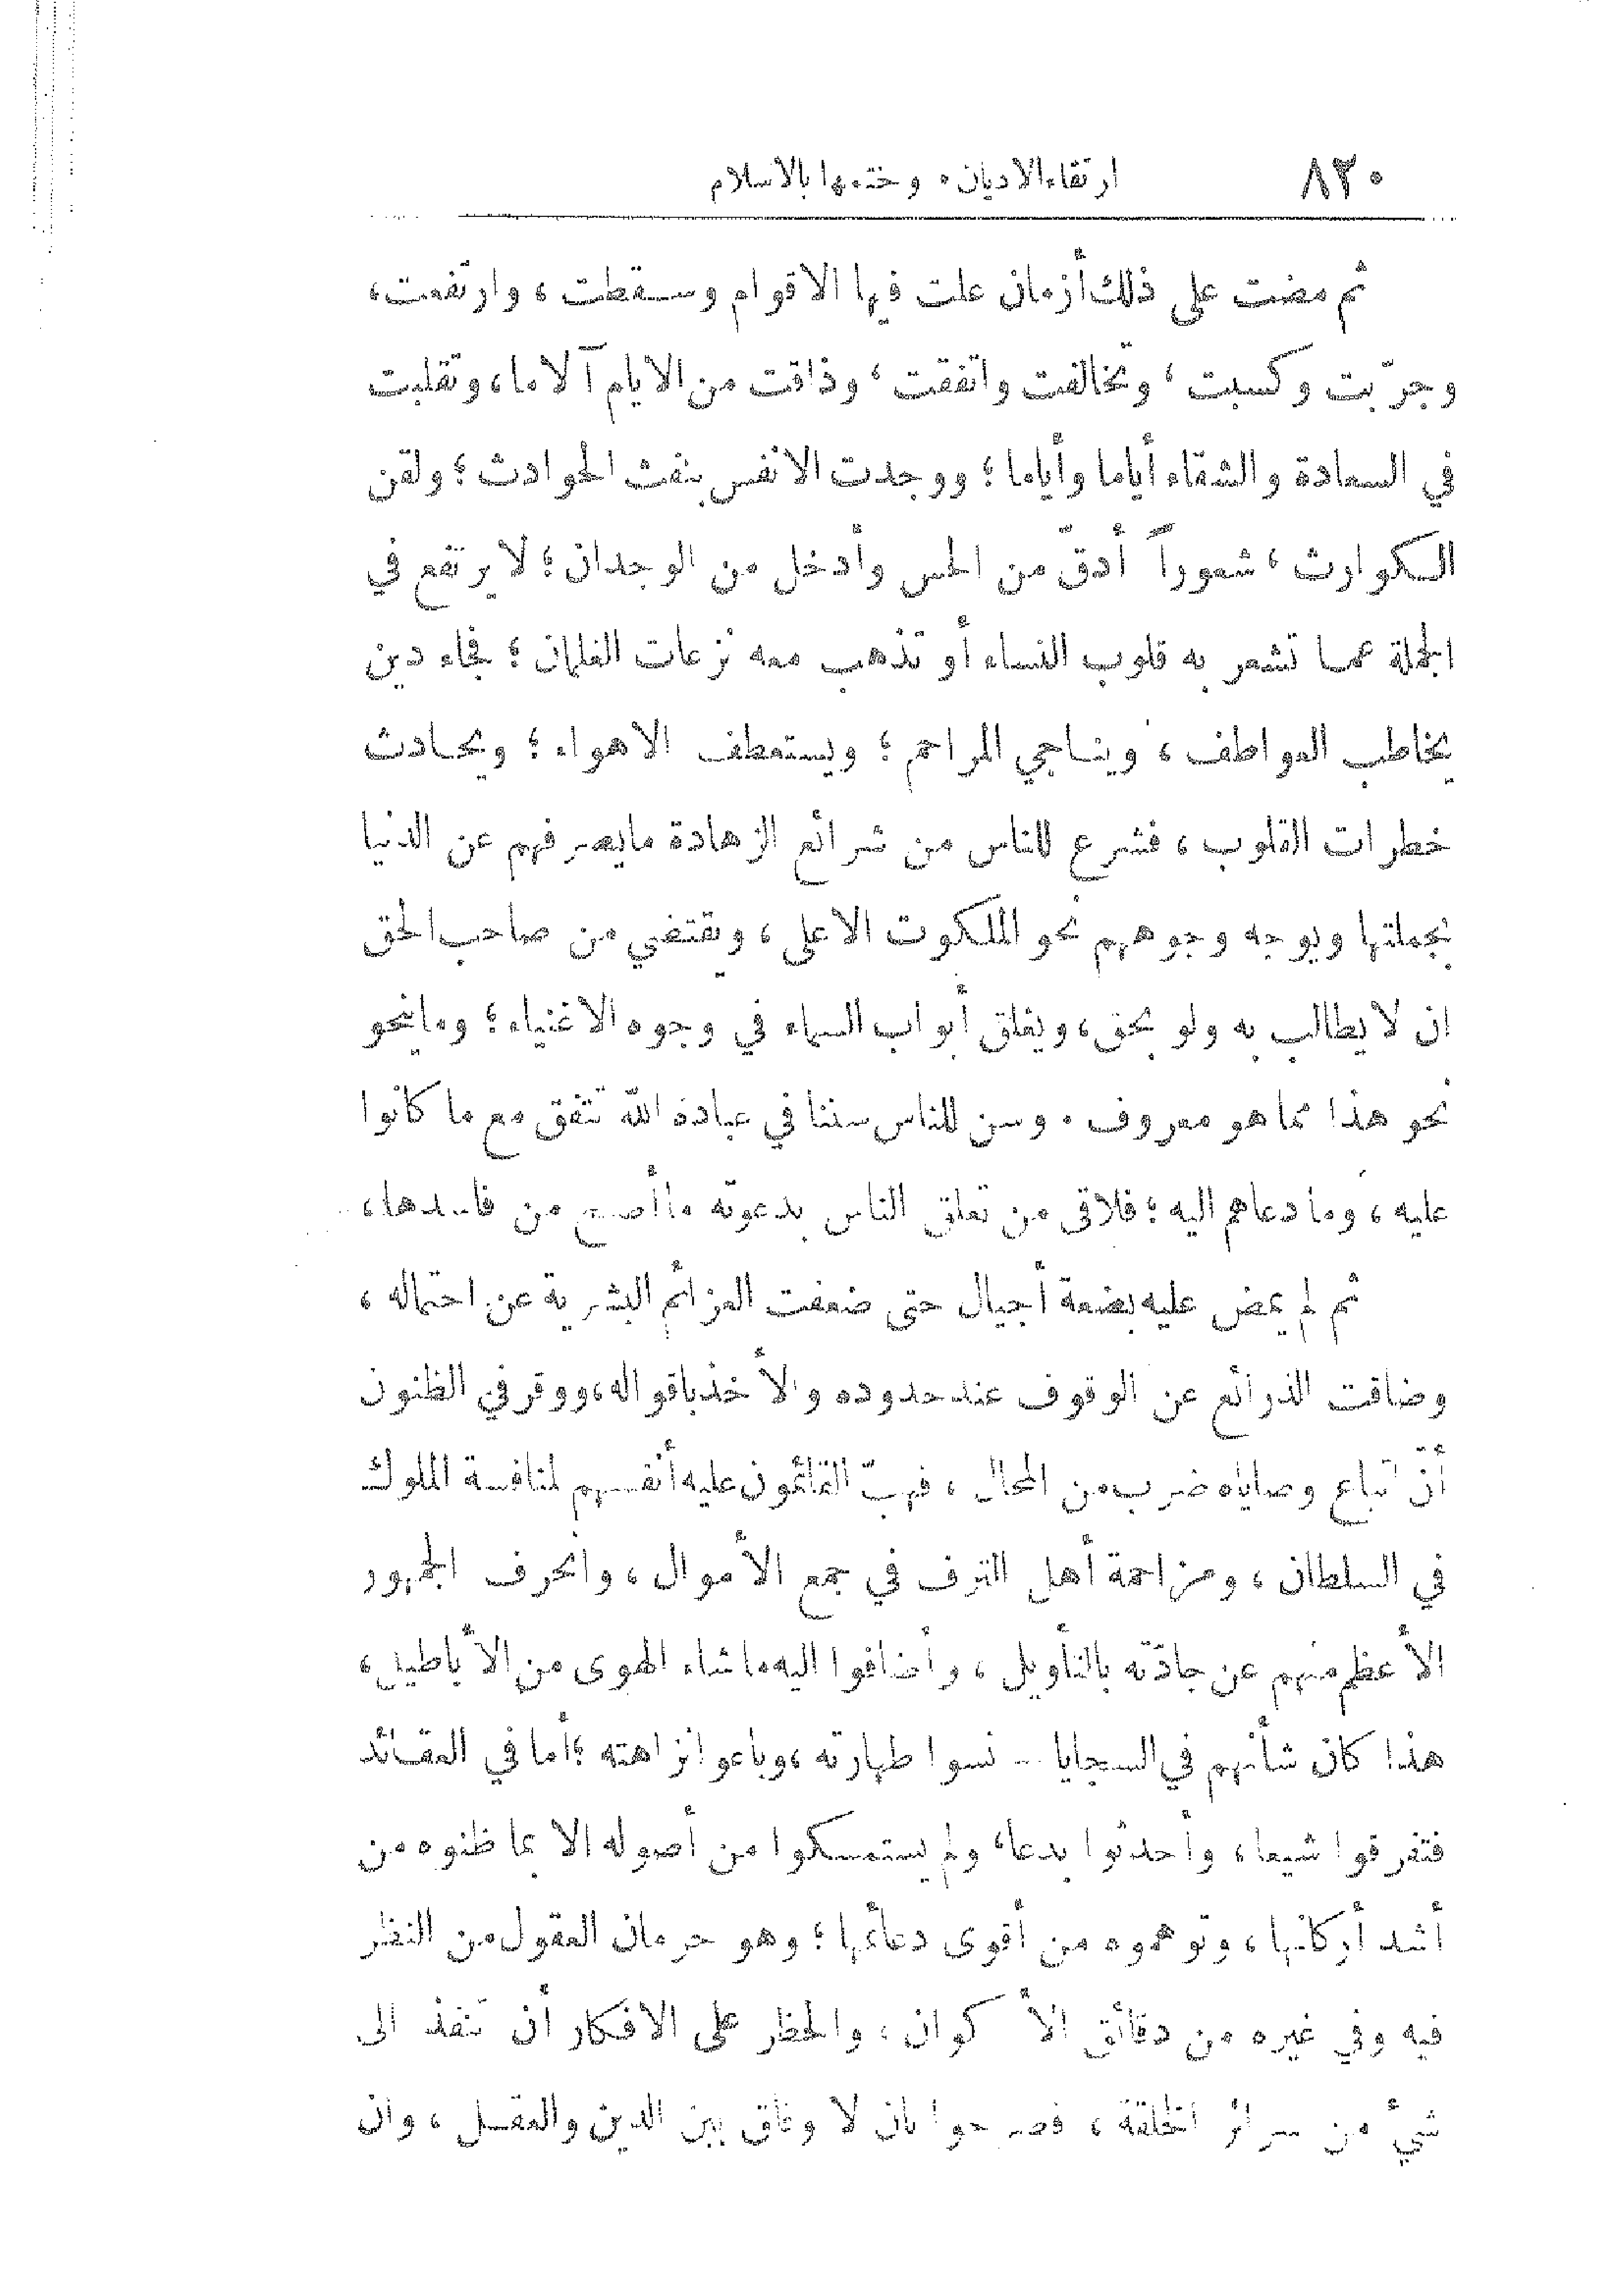 ٨٢٠ ارتقاء الاديان. وختمها بالاسلام
ثم مضت على ذلك أزمان علت فيها الاقوام وسقطت، وارتفعت،
وجرّبت وكسبت، وتخالفت واتفقت، وذاقت من الايام آلاما، وتقلبت
في السعادة والشقاء أياما وأياما؛ ووجدت الانفس بنفث الحوادث؛ ولقن
الكوارث، شعوراً أدقّ من الحس وأدخل من الوجدان؛ لا يرتفع في
الجملة عما تشعر به قلوب النساء أو تذهب معه نزعات الغلمان؛ فجاء دين
يخاطب العواطف، ويناجي المراحم؛ ويستعطف الاهواء؛ ويحادث
خطرات القلوب، فشرع للناس من شرائع الزهادة مايصرفهم عن الدنيا
بجملتها ويوجه وجوههم نحو الملكوت الاعلى، ويقتضي من صاحب الحق
ان لا يطالب به ولو بحق، ويغلق أبواب السماء في وجوه الاغنياء؛ وماينحو
نحو هذا مما هو معروف. وسن للناس سننا في عبادة الله تتفق مع ما كانوا
عليه، وما دعاهم اليه؛ فلاقى من تعلق الناس بدعوته ما أصلح من فاسدها،
ثم لم يمض عليه بضعة أجيال حتى ضعفت العزائم البشرية عن احتماله،
وضاقت الذرائع عن الوقوف عند حدوده والأخذ باقواله، ووقر في الظنون
أنّ اتباع وصاياه ضرب من المحال، فهبّ القائمون عليه أنفسهم لمنافسة الملوك
في السلطان، ومزاحمة أهل الترف في جمع الأموال، وانحرف الجمهور
الأعظم منهم عن جادّته بالتأويل، وأضافوا اليه ما شاء الهوى من الأباطيل،
هذا كان شأنهم في السجايا -- نسوا طهارته، وباعوا نزاهته؛ أما في العقائد
فتفرقوا شيعا، وأحدثوا بدعا، ولم يستمسكوا من أصوله الا بما ظنوه من
أشد أركانها، وتوهموه من أقوى دعائمها؛ وهو حرمان العقول من النظر
فيه وفي غيره من دقائق الأكوان، والحظر على الافكار أن تنفذ الى
شيء من سرائر الخلقة، فصرحوا بان لا وفاق بين الدين والعقل، وان